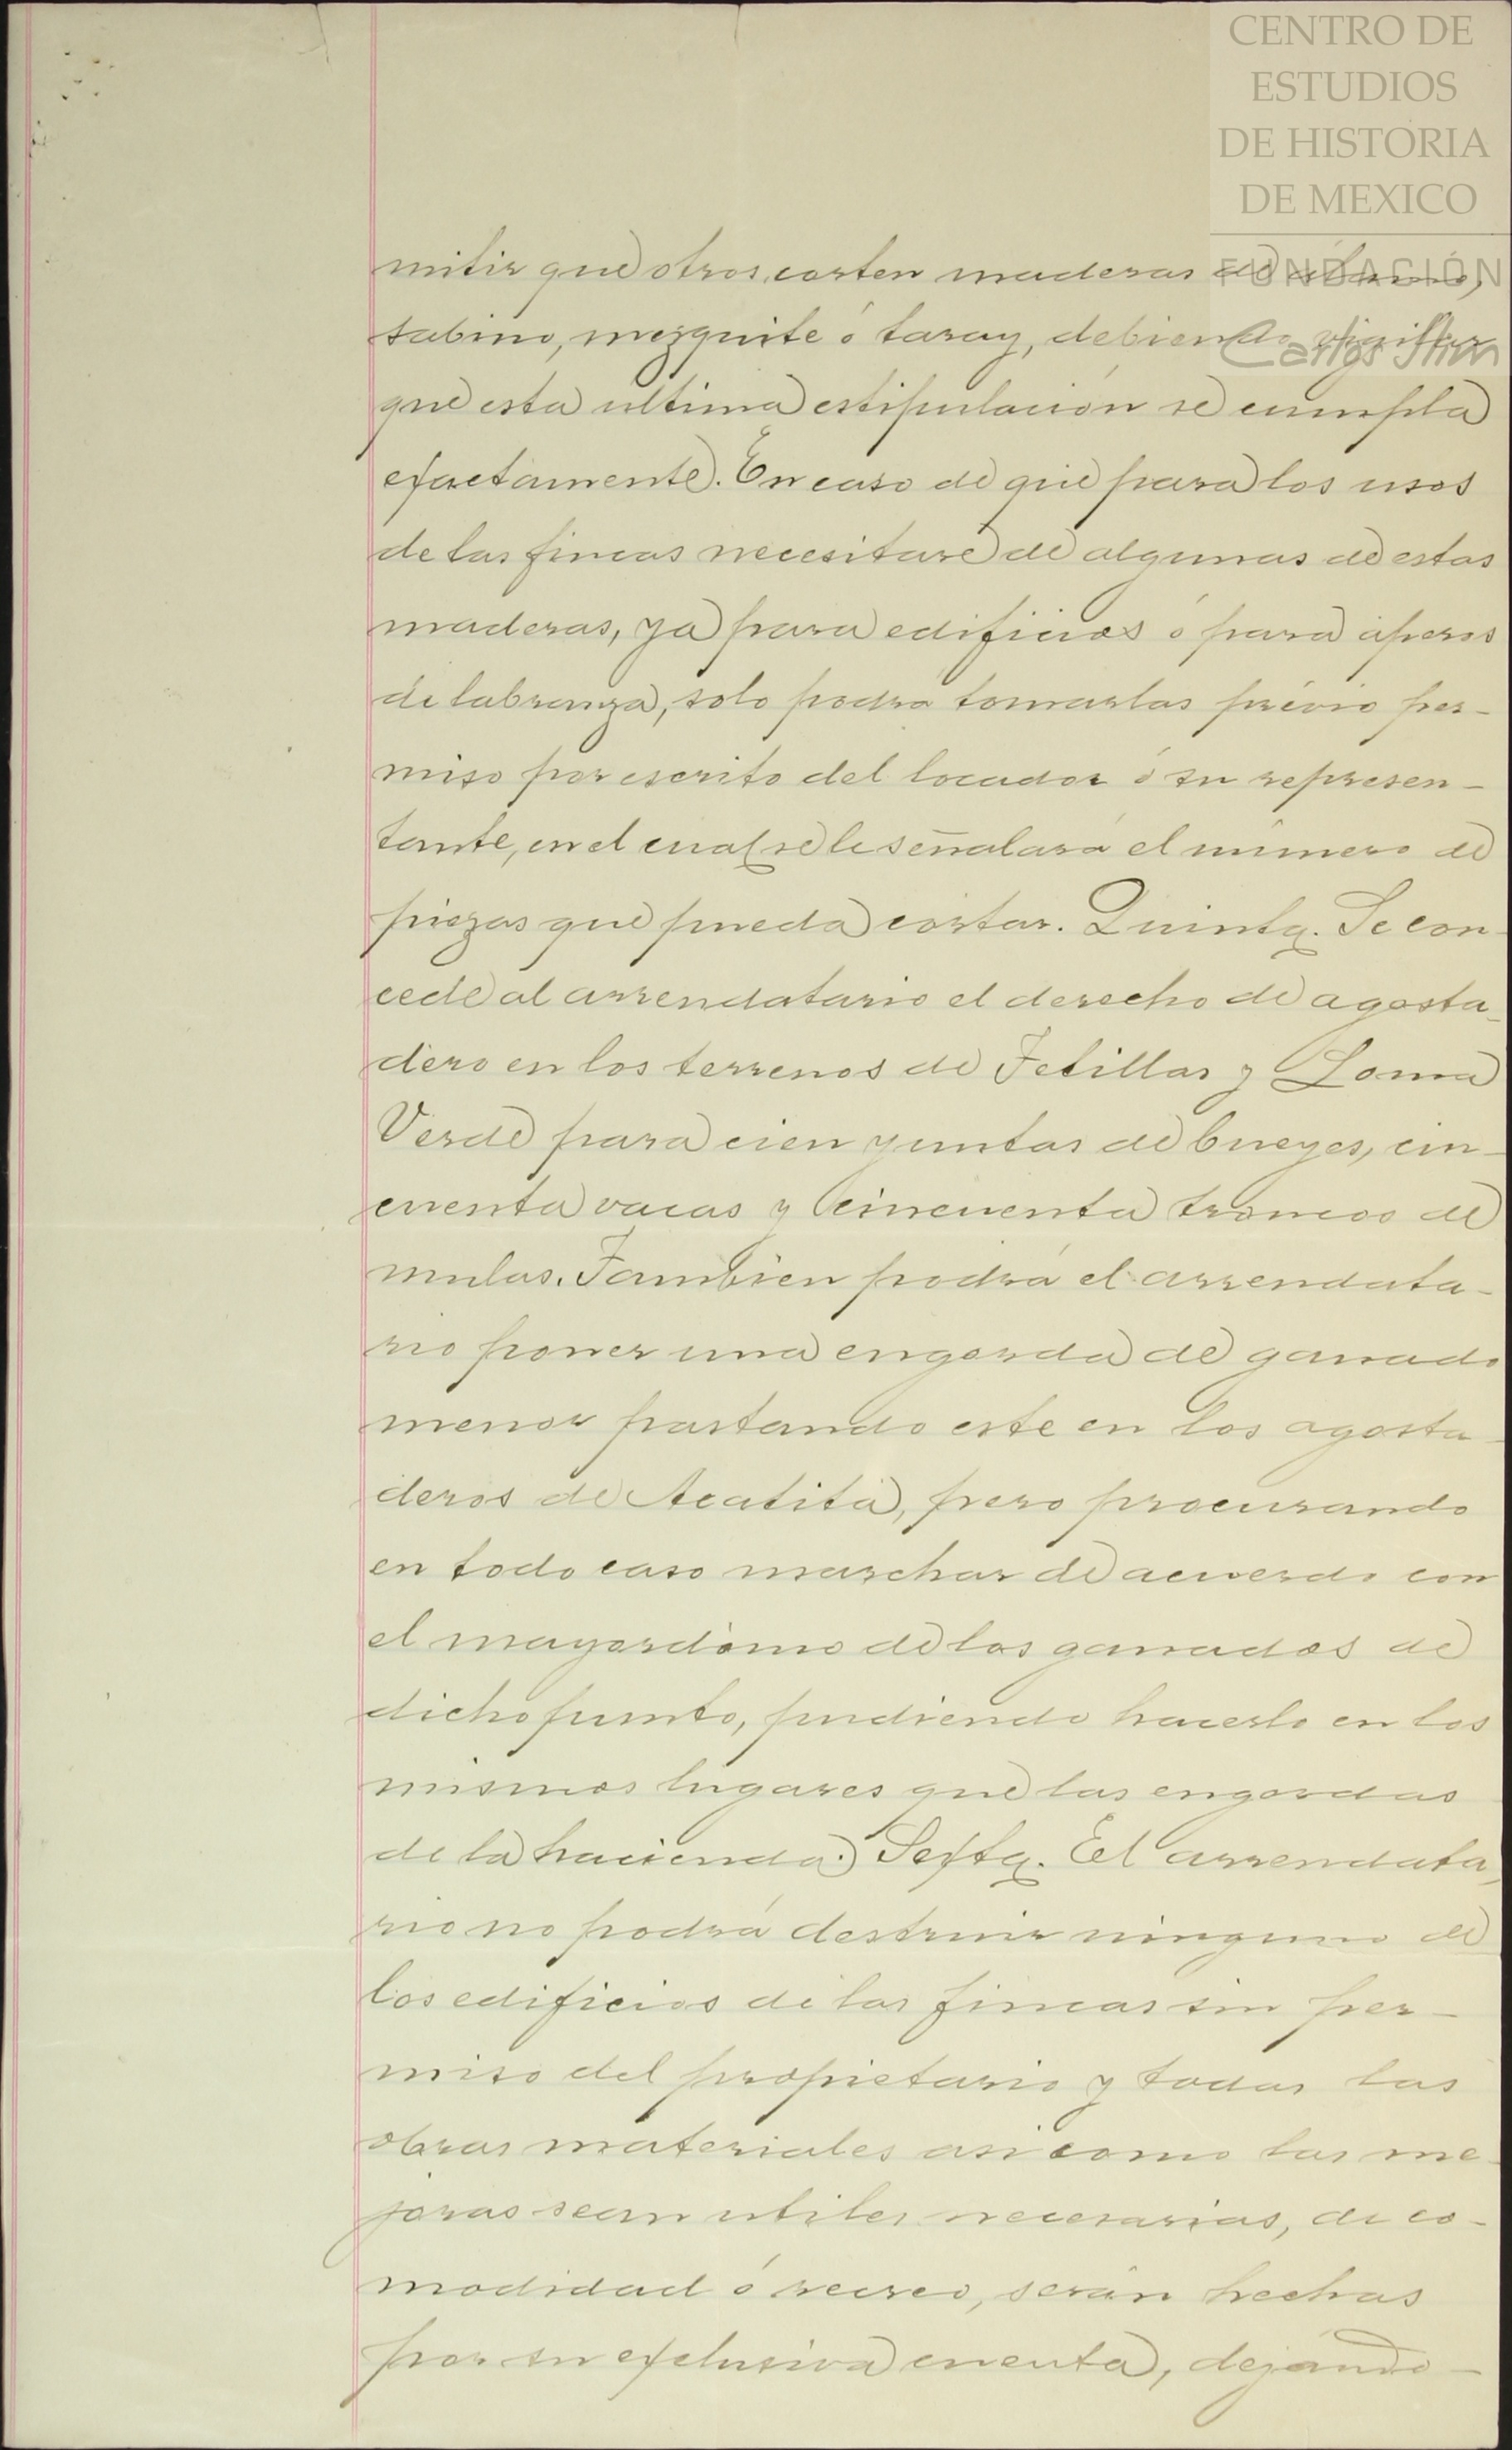 CENTRO DE
ESTUDIOS
DE HISTORIA
DE MEXICO
FUNDACIÓN
Carlos Slim
mitir que otros corten maderas de álamo,
sabino, mezquite ó taray, debiendo vigilar
que esta ultima estipulación se cumpla
exactamente. En caso de que para los usos
de las fincas necesitare de algunas de estas
maderas, ya para edificios ó para aperos
de labranza, solo podrá tomarlas prévio per-
miso por escrito del locador ó su represen-
tante, en el cual se le señalará el número de
piezas que pueda cortar. Quinta. Se con-
cede al arrendatario el derecho de agosta-
dero en los terrenos de Tetillas y Loma
Verde para cien yuntas de bueyes, cin-
cuenta vacas y cincuenta troncos de
mulas. Tambien podrá el arrendata-
rio poner una engorda de ganado
menor pastando este en los agosta-
deros de Acatita, pero procurando
en todo caso marchar de acuerdo con
el mayordomo de los ganados de
dicho punto, pudiendo hacerlo en los
mismos lugares que las engordas
de la hacienda. Sexta. El arrendata-
rio no podrá destruir ninguno de
los edificios de las fincas sin per-
miso del propietario y todas las
obras materiales asi como las me-
joras sean utiles necesarias, de co-
modidad ó recreo, serán hechas
por su exclusiva cuenta, dejando-